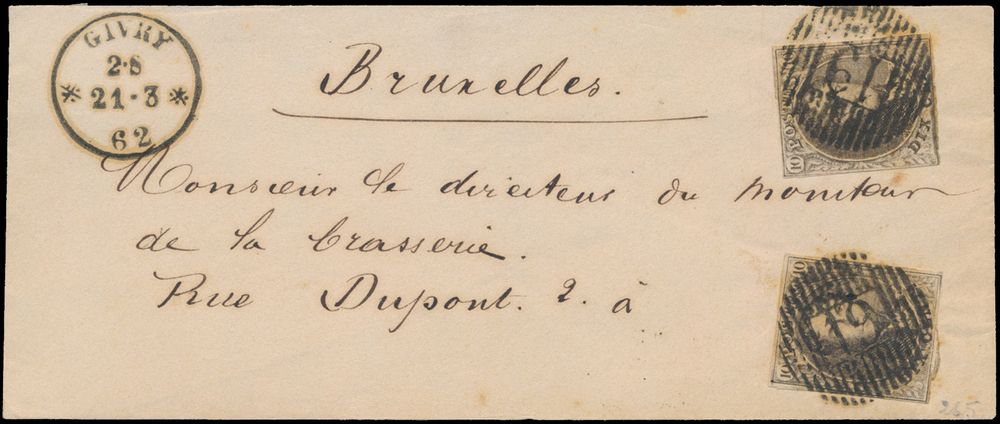 GIVRY
2·S
21·3
62
Bruxelles.
Monsieur le directeur du moniteur
de la brasserie.
Rue Dupont. 2. à
10 POSTES DIX
10
10
265